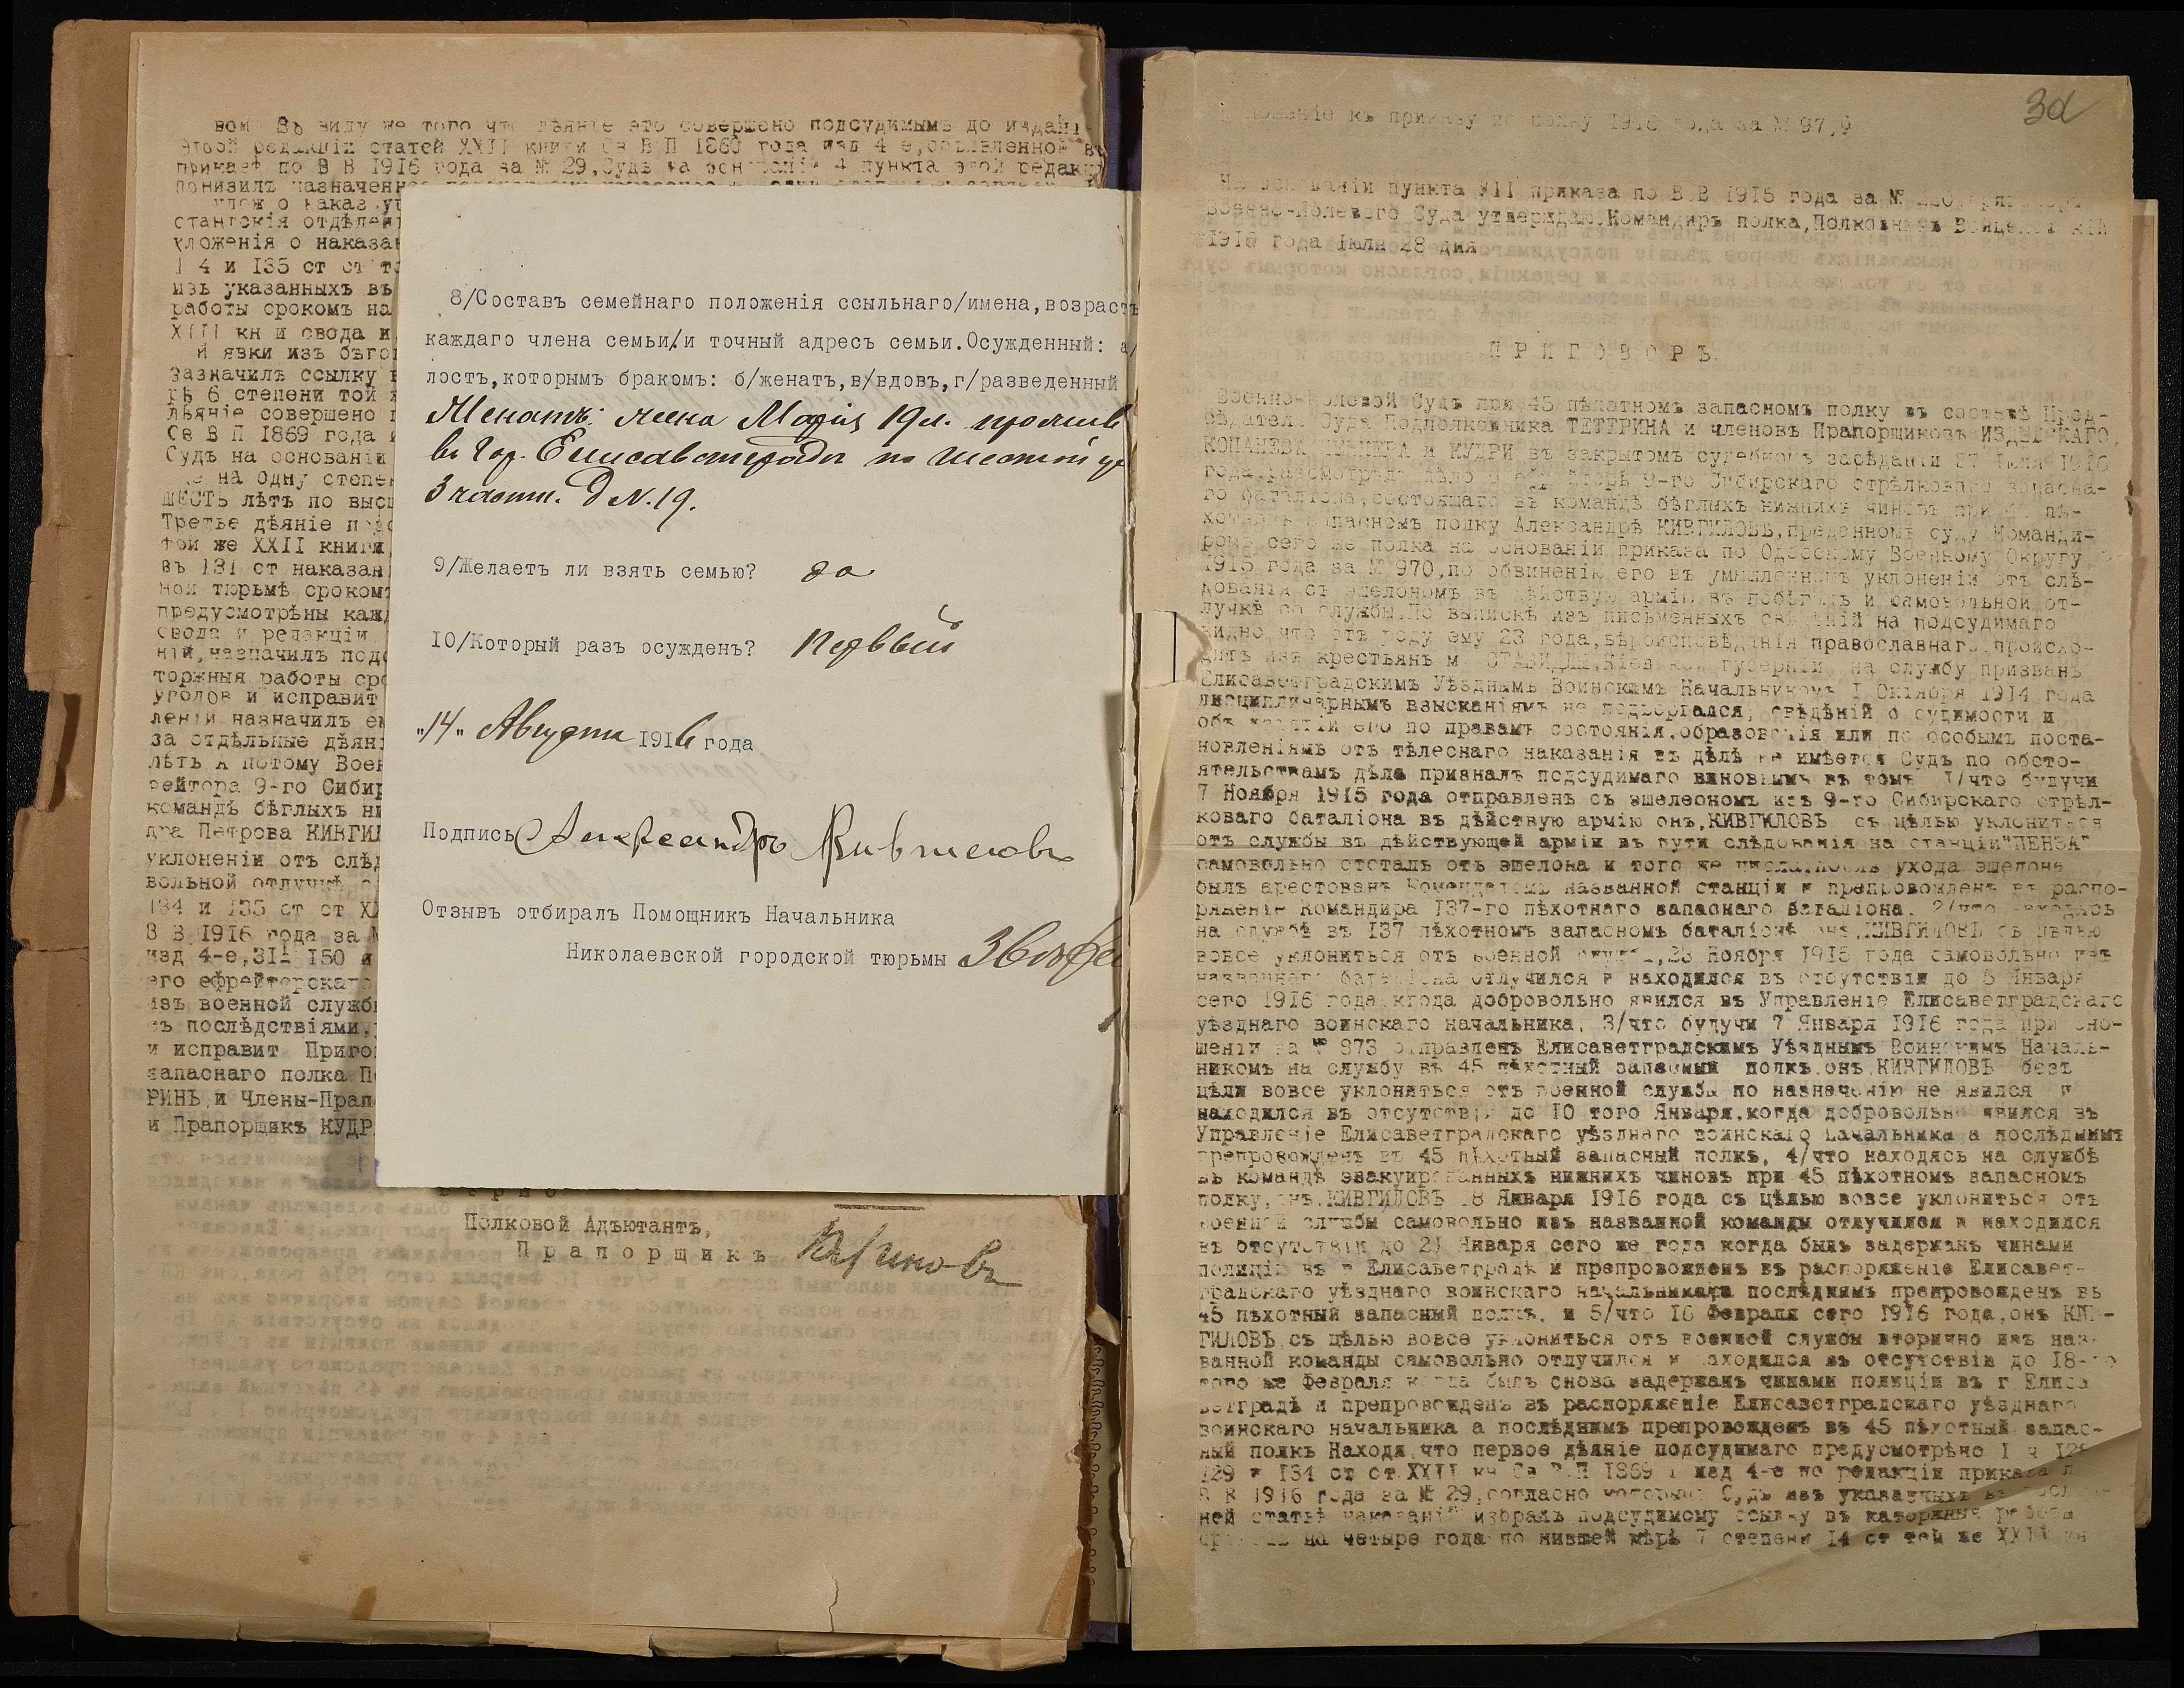 вом Въ виду же того что дѣяніе это совершено подсудимымъ до изданія
этой редакціи статей XXII книги Св В П 1869 года изд 4 е, объявленной въ
приказѣ по В В 1916 года за № 29, Судъ на основаніи 4 пункта этой редакціи
понизилъ назначенное
улож о наказ
стантскія отдѣлен
уложенія о наказан
и 135 ст ст то
изъ указанныхъ въ
работы срокомъ на
XXII кн и свода и
и явки изъ бѣго
назначилъ ссылку в
рѣ 6 степени той ж
дѣяніе совершено п
Св В П 1869 года и
Судъ на основаніи
же на одну степен
ШЕСТЬ лѣтъ по высш
Третье дѣяніе подс
той же XXII книги
въ 131 ст наказан
ной тюрьмѣ срокомъ
предусмотрѣны кажд
свода и редакціи
ній, назначилъ подс
торжныя работы сро
уголов и исправит
леній назначилъ ем
за отдѣльные дѣян
лѣтъ А потому Воен
рейтора 9-го Сибир
командѣ бѣглыхъ ни
дра Петрова КИВГИЛ
уклоненіи отъ слѣд
вольной отлучкѣ
134 и 135 ст ст XX
В В 1916 года за №
изд 4-е, 31 150 и
его ефрейторскаго
изъ военной служб
съ послѣдствіями,
и исправит Приго
запаснаго полка П
РИНЪ и Члены-Прап
и Прапорщикъ КУДР
8/Составъ семейнаго положенія ссыльнаго/имена, возрастъ
каждаго члена семьи/и точный адресъ семьи. Осужденный: а/
лостъ, которымъ бракомъ: б/женатъ, в/вдовъ, г/разведенный
Женатъ: жена Марія 19 л. прожив
въ гор. Елисаветградѣ по шестой ул
3 части. д N. 19.
9/Желаетъ ли взять семью? да
10/Который разъ осужденъ? первый
"14" Августа 1916 года
Подпись Александръ Кивгиловъ
Отзывъ отбиралъ Помощникъ Начальника
Николаевской городской тюрьмы
Полковой Адъютантъ,
Прапорщикъ
3d
къ приказу по полку 1916 года за № 97,
На основаніи пункта VII приказа по В.В 1915 года за №
Военно-Полевого Суда утверждаю. Командиръ полка, Полковникъ
1916 года Іюля 28 дня
ПРИГОВОРЪ
Военно-Полевой Судъ при 45 пѣхотномъ запасномъ полку въ составѣ Пред-
сѣдателя Суда Подполковника ТЕТЕРИНА и членовъ Прапорщиковъ
и КУДРИ въ закрытомъ судебномъ засѣданіи 27 Іюля 1916
года, разсмотрѣлъ дѣло о 9-го Сибирскаго стрѣлковаго запасна-
го баталіона, состоящаго въ командѣ бѣглыхъ нижнихъ чиновъ при 45 пѣ-
хотномъ запасномъ полку Александрѣ КИВГИЛОВѢ, преданномъ суду Команди-
ромъ сего же полка на основаніи приказа по Одесскому Военному Округу
1915 года за № 970, по обвиненію его въ умышленномъ уклоненіи отъ слѣ-
дованія съ эшелономъ въ дѣйствую армію въ побѣгахъ и самовольной от-
лучкѣ со службы. По выпискѣ изъ письменныхъ свѣдѣній на подсудимаго
видно, что отъ роду ему 23 года, вѣроисповѣданія православнаго, происхо-
дитъ изъ крестьянъ м Кіевской губерніи, на службу призванъ
Елисаветградскимъ Уѣзднымъ Воинскимъ Начальникомъ 1 Октября 1914 года
дисциплинарнымъ взысканіямъ не подвергался, свѣдѣній о судимости и
объ изъятіи его по правамъ состоянія, образованія или по особымъ поста-
новленіямъ отъ тѣлеснаго наказанія въ дѣлѣ не имѣется Судъ по обсто-
ятельствамъ дѣла призналъ подсудимаго виновнымъ въ томъ 1/что будучи
7 Ноября 1915 года отправленъ съ эшелеономъ изъ 9-го Сибирскаго стрѣл-
коваго баталіона въ дѣйствую армію онъ, КИВГИЛОВЪ съ цѣлью уклониться
отъ службы въ дѣйствующей арміи въ пути слѣдованія на станціи "ПЕНЗА"
самовольно отсталъ отъ эшелона и того же числа, послѣ ухода эшелона
былъ арестованъ Комендатомъ названной станціи и препровожденъ въ распо-
ряженіе Командира 137-го пѣхотнаго запаснаго баталіона. 2/что находясь
на службѣ въ 137 пѣхотномъ запасномъ баталіонѣ онъ, КИВГИЛОВЪ съ цѣлью
вовсе уклониться отъ военной службы, 23 Ноября 1915 года самовольно изъ
названнаго баталіона отлучился и находился въ отсутствіи до 5 Января
сего 1916 года, когда добровольно явился въ Управленіе Елисаветградскаго
уѣзднаго воинскаго начальника, 3/что будучи 7 Января 1916 года при сно-
шеніи за № 973 отправленъ Елисаветградскимъ Уѣзднымъ Воинскимъ Началь-
никомъ на службу въ 45 пѣхотный запасный полкъ, онъ, КИВГИЛОВЪ безъ
цѣли вовсе уклоняться отъ военной службы по назначенію не явился и
находился въ отсутствіи до 10 того Января, когда добровольно явился въ
Управленіе Елисаветградскаго уѣзднаго воинскаго начальника а послѣднимъ
препровожденъ въ 45 пѣхотный запасный полкъ, 4/что находясь на службѣ
въ командѣ эвакуированныхъ нижнихъ чиновъ при 45 пѣхотномъ запасномъ
полку, онъ, КИВГИЛОВЪ 18 Января 1916 года съ цѣлью вовсе уклониться отъ
военной службы самовольно изъ названной команды отлучился и находился
въ отсутствіи до 21 Января сего же года когда былъ задержанъ чинами
полиціи въ г Елисаветградѣ и препровожденъ въ распоряженіе Елисавет-
градскаго уѣзднаго воинскаго начальника а послѣднимъ препровожденъ въ
45 пѣхотный запасный полкъ, и 5/что 16 Февраля сего 1916 года, онъ КИВ-
ГИЛОВЪ, съ цѣлью вовсе уклониться отъ военной службы вторично изъ наз-
ванной команды самовольно отлучился и находился въ отсутствіи до 18-го
того же Февраля когда былъ снова задержанъ чинами полиціи въ г Елиса
ветградѣ и препровожденъ въ распоряженіе Елисаветградскаго уѣзднаго
воинскаго начальника а послѣднимъ препровожденъ въ 45 пѣхотный запас-
ный полкъ Находя, что первое дѣяніе подсудимаго предусмотрѣно 1 ч 128
129 и 134 ст ст XXII кн Св В.П 1869 г изд 4-е по редакціи приказа п
В В 1916 года за № 29, согласно которыхъ Судъ изъ указанныхъ въ послѣд-
ней статьѣ наказаній избралъ подсудимому ссылку въ каторжныя работы
срокомъ на четыре года по низшей мѣрѣ 7 степени 14 ст той же XXII кн